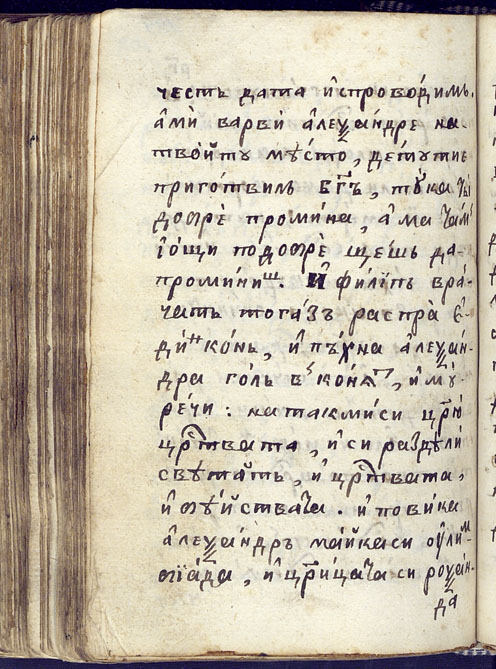 честь дата и҆спрово́димь.
а҆мѝ варвѝ а҆леѯа́ндре на-
тво́йтѡ мѣ́сто, детѹтие
приго́твиль бг҃ъ, тꙋ́ка ч̾ѝ
добрѐ промина, а҆ма ча́м̾
і҆о́щи подобрѐ ще́шь да-
промини́ш. И҆ фили́пь вра́-
чать тога́зъ распра̀ є҆-
ди́н ко́нь, и҆пъ́хна а҆леѯа́н-
дра го́ль в̾ ко́нѧт, и҆мꙋ̀
ре́чи : натакми́си цр҃ю̀
цр҃твата, и҆си раздѣлѝ
свѣта́ть, и҆ цр҃твата,
и҆ ѕѣ́йствата . и҆ пови́ка
а҆леѯа́ндръ ма́йкаси ѻу҆лим-
пїа́да, и҆ цр҃и́цатаси роѯа́н-
да̀